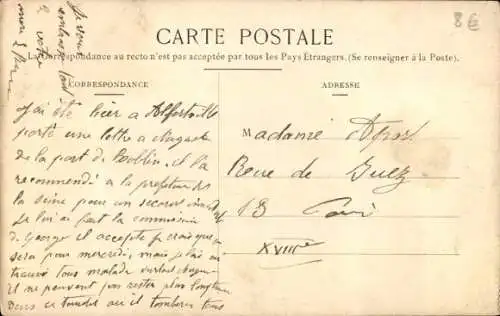 8€
CARTE POSTALE
La Correspondance au recto n'est pas acceptée par tous les Pays Etrangers. (Se renseigner à la Poste).
CORRESPONDANCE
ADRESSE
Je vous
embrasse tout
à votre
J'ai été hier à Alfortville
porté une lettre à
de la part de il l'a
recommendé à la prefecture de
la Seine pour un secours
Je lui ai fait la commission
de George il accepte je crois que
sera pour mercredi, mais je les ai
trouvé tous malade surtout
il ne peuvent pas rester plus longtemps
dans ce où il tomberons tous
Madame
Rue de
13 Paris
XVIIIe